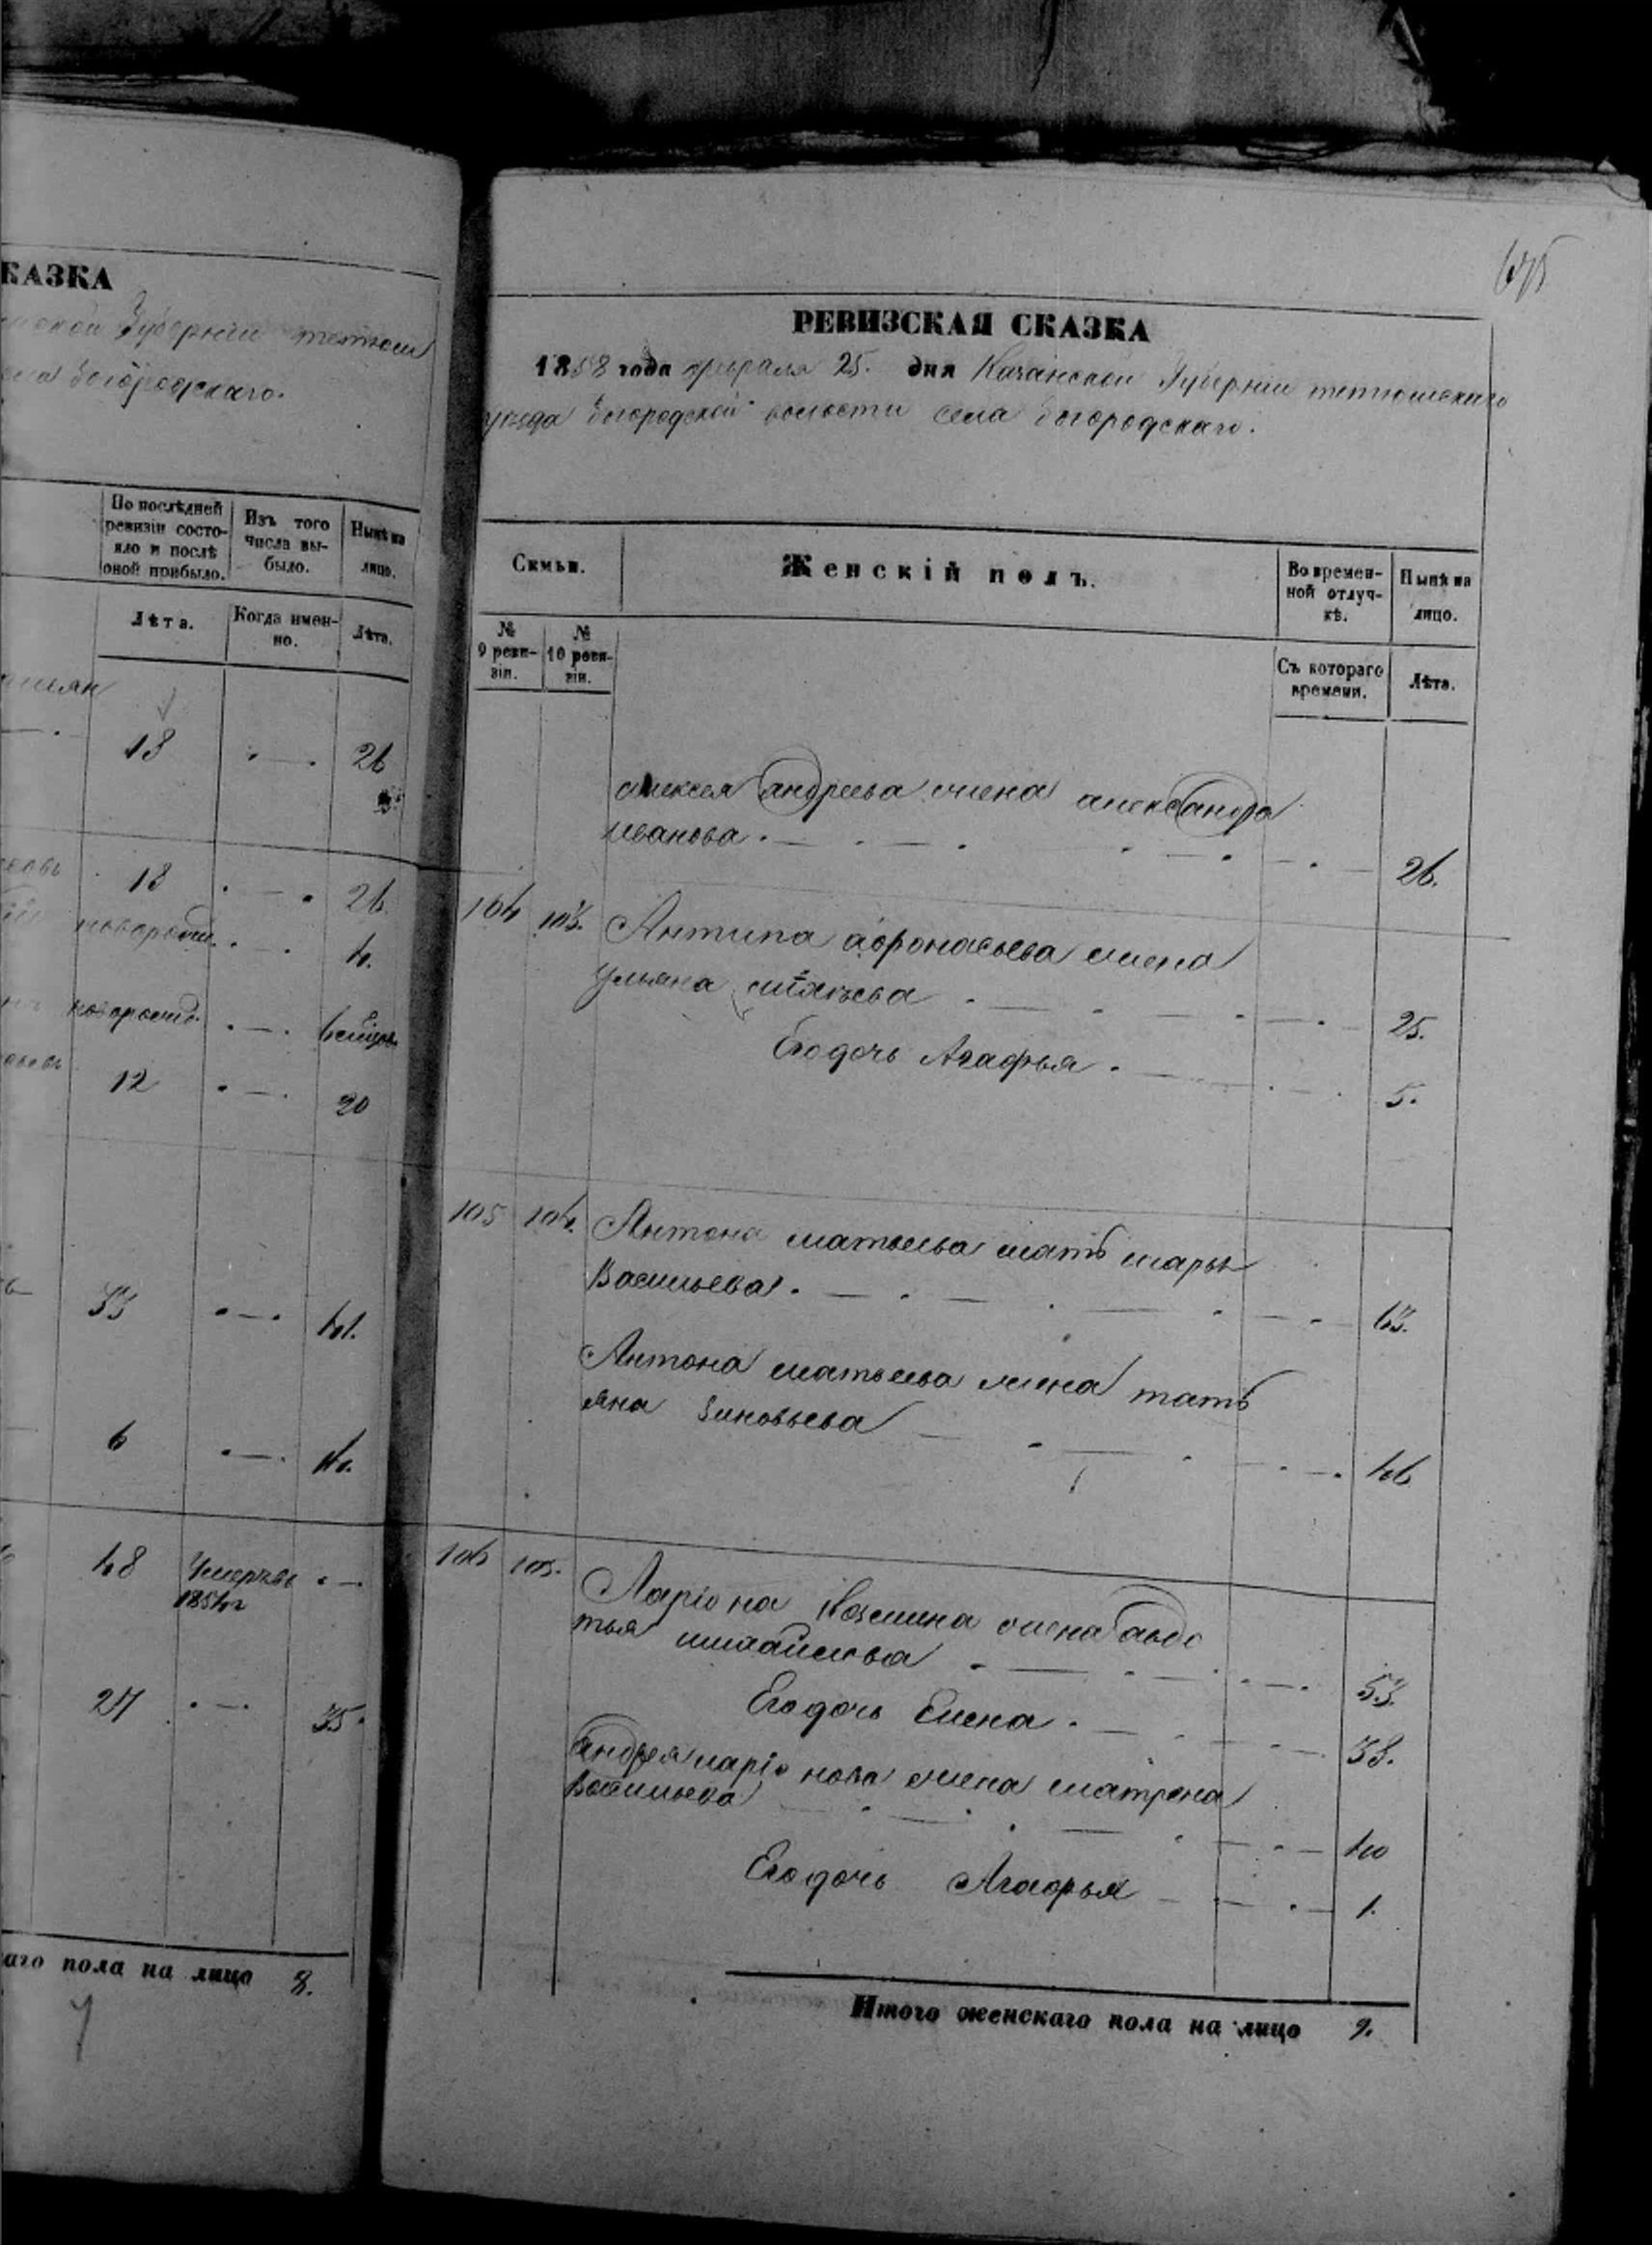 КАЗКА
ской Губерніи тетюш
села богородскаго.
По послѣдней
ревизіи состо-
яло и послѣ
оной прибыло.
Изъ того
числа вы-
было.
Нынѣ на
лицо.
Лѣта.
Когда имен-
но.
Лѣта.
18 26
18 26
новорожд. 4.
новорожд.
12 20
33 41.
6 14.
48 Умеръ въ
1854 г
27 35.
аго пола на лицо 8.
РЕВИЗСКАЯ СКАЗКА
1858 года февраля 25. дня Казанской Губерніи тетюшскаго
уезда богородской волости села богородскаго.
Семьи.
Женскій полъ.
Во времен-
ной отлуч-
кѣ.
Нынѣ на
лицо.
№
9 реви-
зіи.
№
10 реви-
зіи.
Съ котораго
времени.
Лѣта.
алексея андреева жена александра
иванова. 26.
104 103. Антипа афонасьева жена
ульяна 25.
Его дочь Агафья. 5.
105 104. Антона матвеева мать марья
Васильева. 63.
Антона матвеева жена тать
яна зиновьева 46
106 105. Ларіона козмина жена авдо
тья михайлова 53.
Его дочь Елена. 38.
андрея ларіонова жена матрена
Васильева 40
Его дочь Агафья 1.
Итого женскаго пола на лицо 9.